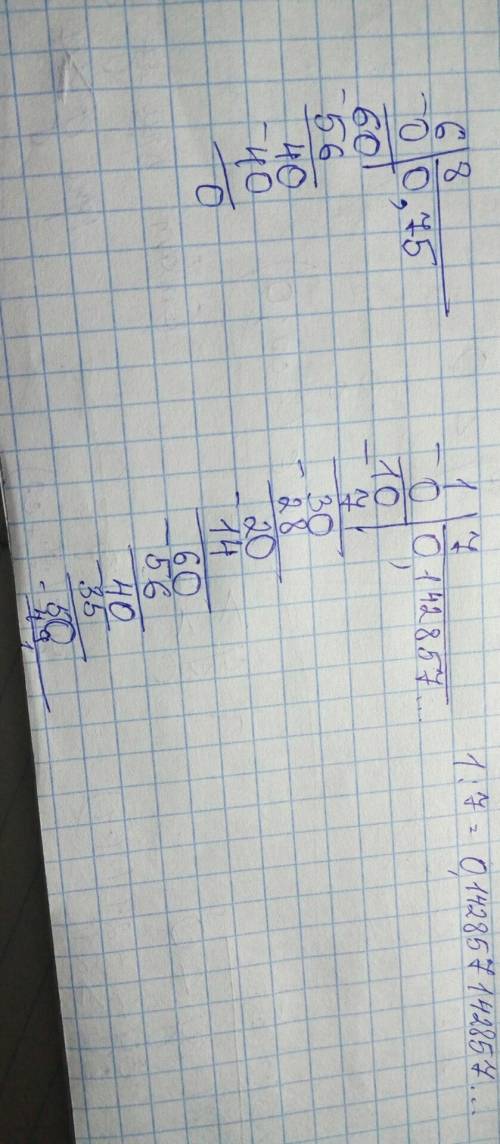 6 | 8
-0 | 0,75
60
-56
40
-40
0
1 | 7
-0 | 0,142857...
10
-7
30
-28
20
-14
60
-56
40
-35
50
-49
1
1:7 = 0,142857142857...